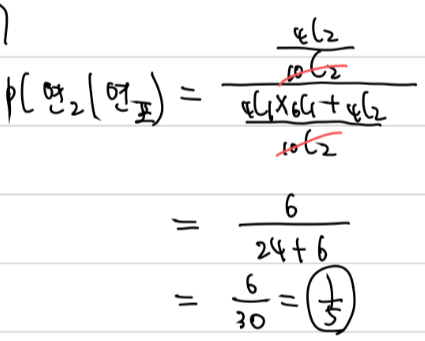 P(연₂|연포) = (₄C₂/₁₀C₂) / ((₄C₁×₆C₁+₄C₂)/₁₀C₂)
= 6/(24+6)
= 6/30 = 1/5